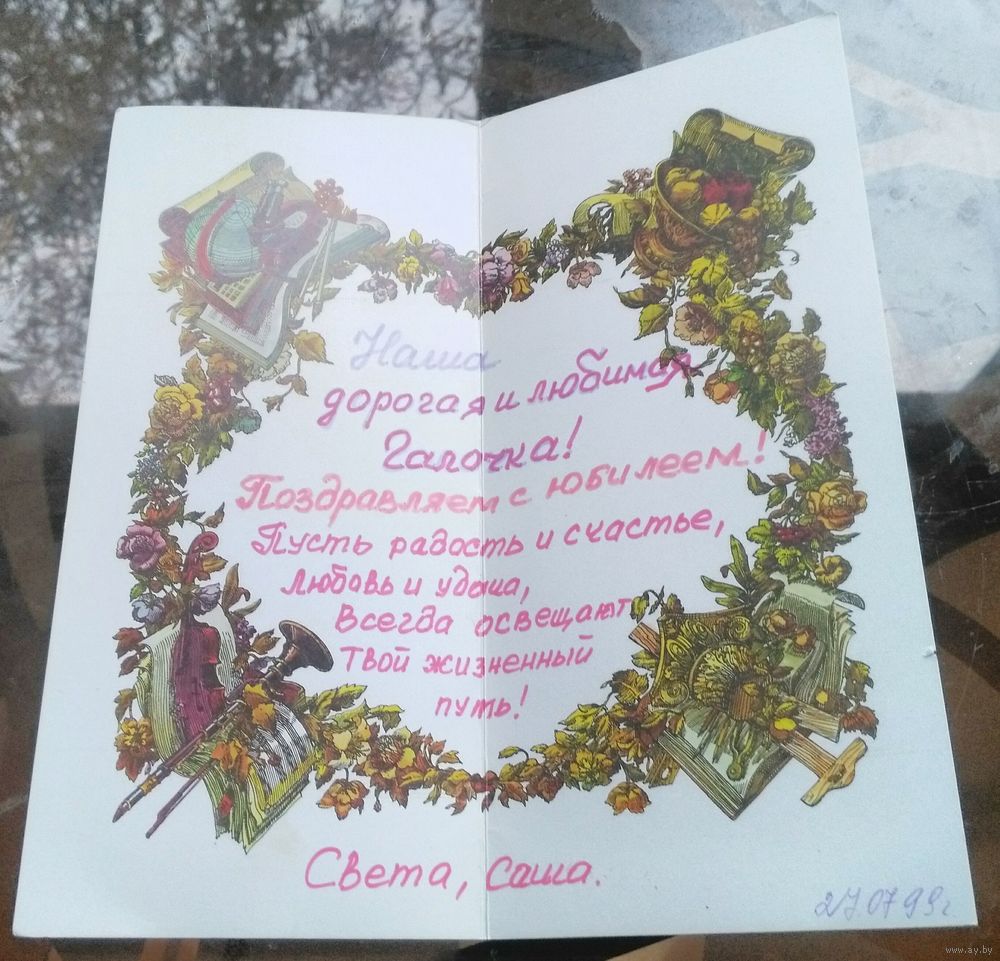 Наша
дорогая и любимая
Галочка!
Поздравляем с юбилеем!
Пусть радость и счастье,
любовь и удача,
Всегда освещают
твой жизненный
путь!
Света, Саша.
27.07.99г.
www.ay.by